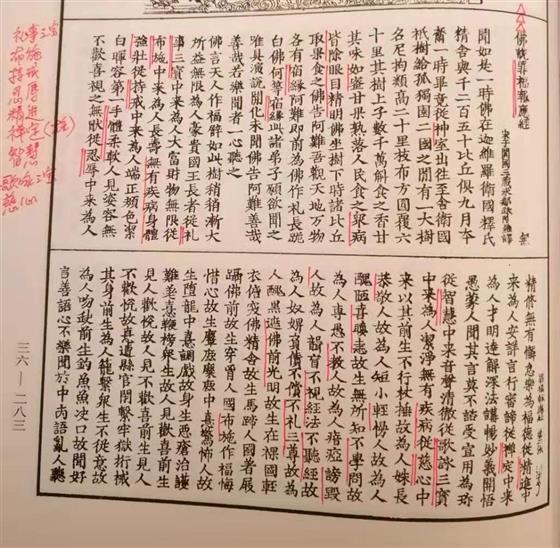 佛說罪福報應經
宋于闐國三藏求那跋陀羅譯
聞如是一時佛在迦維羅衛國釋氏
精舍與千二百五十比丘俱九月本
齋一時畢竟從禪室出往至舍衛國
祇樹給孤獨園二國之間有一大樹
名尼拘類高二十里枝布方圓覆六
十里其樹上子數千萬斛食之香甘
其味如蜜甘果熟落人民食之眾病
皆除眼目精明佛坐樹下時諸比丘
取果食之佛告阿難吾觀天地万物
各有宿緣阿難即前為佛作礼長跪
白佛何等宿緣此諸弟子願欲聞之
唯具演說開化未聞佛告阿難善哉
善哉若樂聞者一心聽之
佛言天人作福譬如此樹稍稍漸大
所益無限為人豪貴國王長者從礼
事三寶中來為人大富財物無限從
布施中來為人長壽無有疾病身體
強壯從持戒中來為人端正顏色潔
白暉容第一手體柔軟人見姿容無
不歡喜視之無猒從忍辱中來為人
精修無有懈怠樂為福德從精進中
來為人安詳言行審諦從禪定中來
為人才明達解深法講暢妙義開悟
愚蒙人聞其言莫不諮受宣用為珍
從智慧中來音聲清徹從歌詠三寶
中來為人潔淨無有疾病從慈心中
來以其前生不行杖故為人姝長
恭敬人故為人短小輕慢人故為人
醜陋喜瞋恚故生無所知不學問故
為人專愚不教人故為人瘖瘂謗毀
人故為人聾盲不視經法不聽經故
為人奴婢負債不償不礼三尊故為
人醜黑遮佛前光明故生在裸國輕
衣突佛精舍故生馬蹄人國者屐
躡佛前故生穿胸人國布施作福悔
惜心故生麞鹿麋麈中喜驚怖人故
生墮龍中喜調戲故身生惡瘡治護
難差喜鞭搒眾生故人見歡喜前生
見人歡悅故人見不歡喜前生見人
不歡悅故喜遭縣官閉繫牢獄杻械
其身前生為人籠繫眾生不從意故
為人吻缺前生釣魚魚決口故聞好
言善語心不樂聞於中鬧語亂人聽
三六—二八三
礼事三宝
布施
持戒
忍辱
精進
禅定
智慧
歌咏三宝
慈心